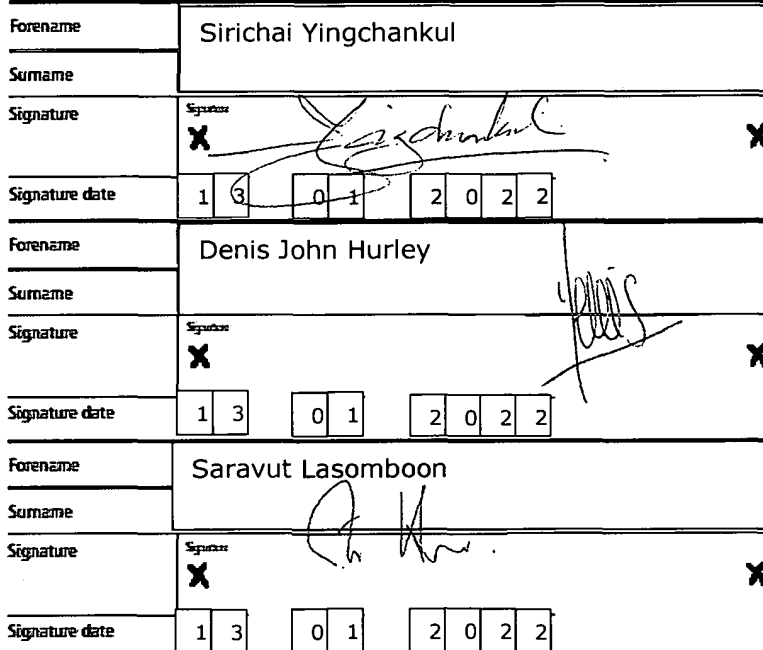 Forename
Sirichai Yingchankul
Surname
Signature
Signature
X
X
Signature date
1 3 0 1 2 0 2 2
Forename
Denis John Hurley
Surname
Signature
Signature
X
X
Signature date
1 3 0 1 2 0 2 2
Forename
Saravut Lasomboon
Surname
Signature
Signature
X
X
Signature date
1 3 0 1 2 0 2 2